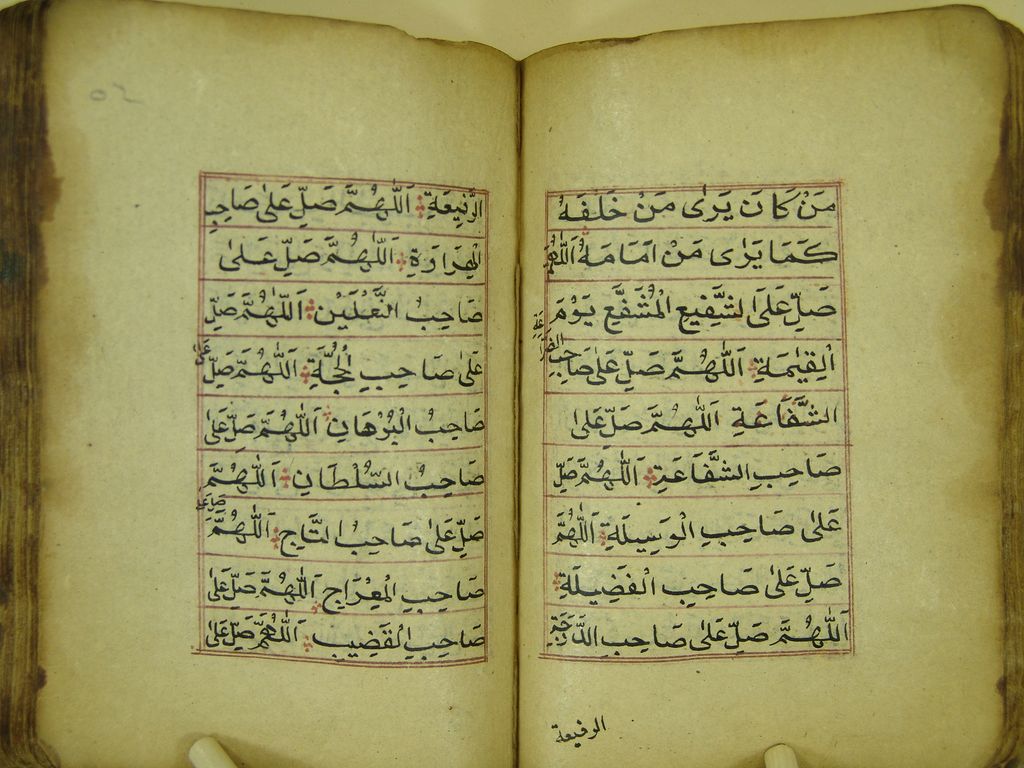 مَنْ كَانَ يَرٰى مَنْ خَلْفَهُ
كَمَا يَرٰى مَنْ اَمَامَهُ اَللّٰهُمَّ
صَلِّ عَلَى الشَّفِيعِ الْمُشَفَّعِ يَوْمَ
الْقِيٰمَةِ اَللّٰهُمَّ صَلِّ عَلٰى صَاحِبِ
الشَّفَاعَةِ اَللّٰهُمَّ صَلِّ عَلٰى
صَاحِبِ الشَّفَاعَةِ اَللّٰهُمَّ صَلِّ
عَلٰى صَاحِبِ الْوَسِيلَةِ اَللّٰهُمَّ
صَلِّ عَلٰى صَاحِبِ الْفَضِيلَةِ
اَللّٰهُمَّ صَلِّ عَلٰى صَاحِبِ الدَّرَجَةِ
الرفيعة
الرَّفِيعَةِ اَللّٰهُمَّ صَلِّ عَلٰى صَاحِبِ
الْهِرَاوَةِ اَللّٰهُمَّ صَلِّ عَلٰى
صَاحِبِ النَّعْلَيْنِ اَللّٰهُمَّ صَلِّ
عَلٰى صَاحِبِ الْحُجَّةِ اَللّٰهُمَّ صَلِّ عَلٰى
صَاحِبِ الْبُرْهَانِ اَللّٰهُمَّ صَلِّ عَلٰى
صَاحِبِ السُّلْطَانِ اَللّٰهُمَّ
صَلِّ عَلٰى صَاحِبِ التَّاجِ اَللّٰهُمَّ صَلِّ عَلٰى
صَاحِبِ الْمِعْرَاجِ اَللّٰهُمَّ صَلِّ عَلٰى
صَاحِبِ الْقَضِيبِ اَللّٰهُمَّ صَلِّ عَلٰى